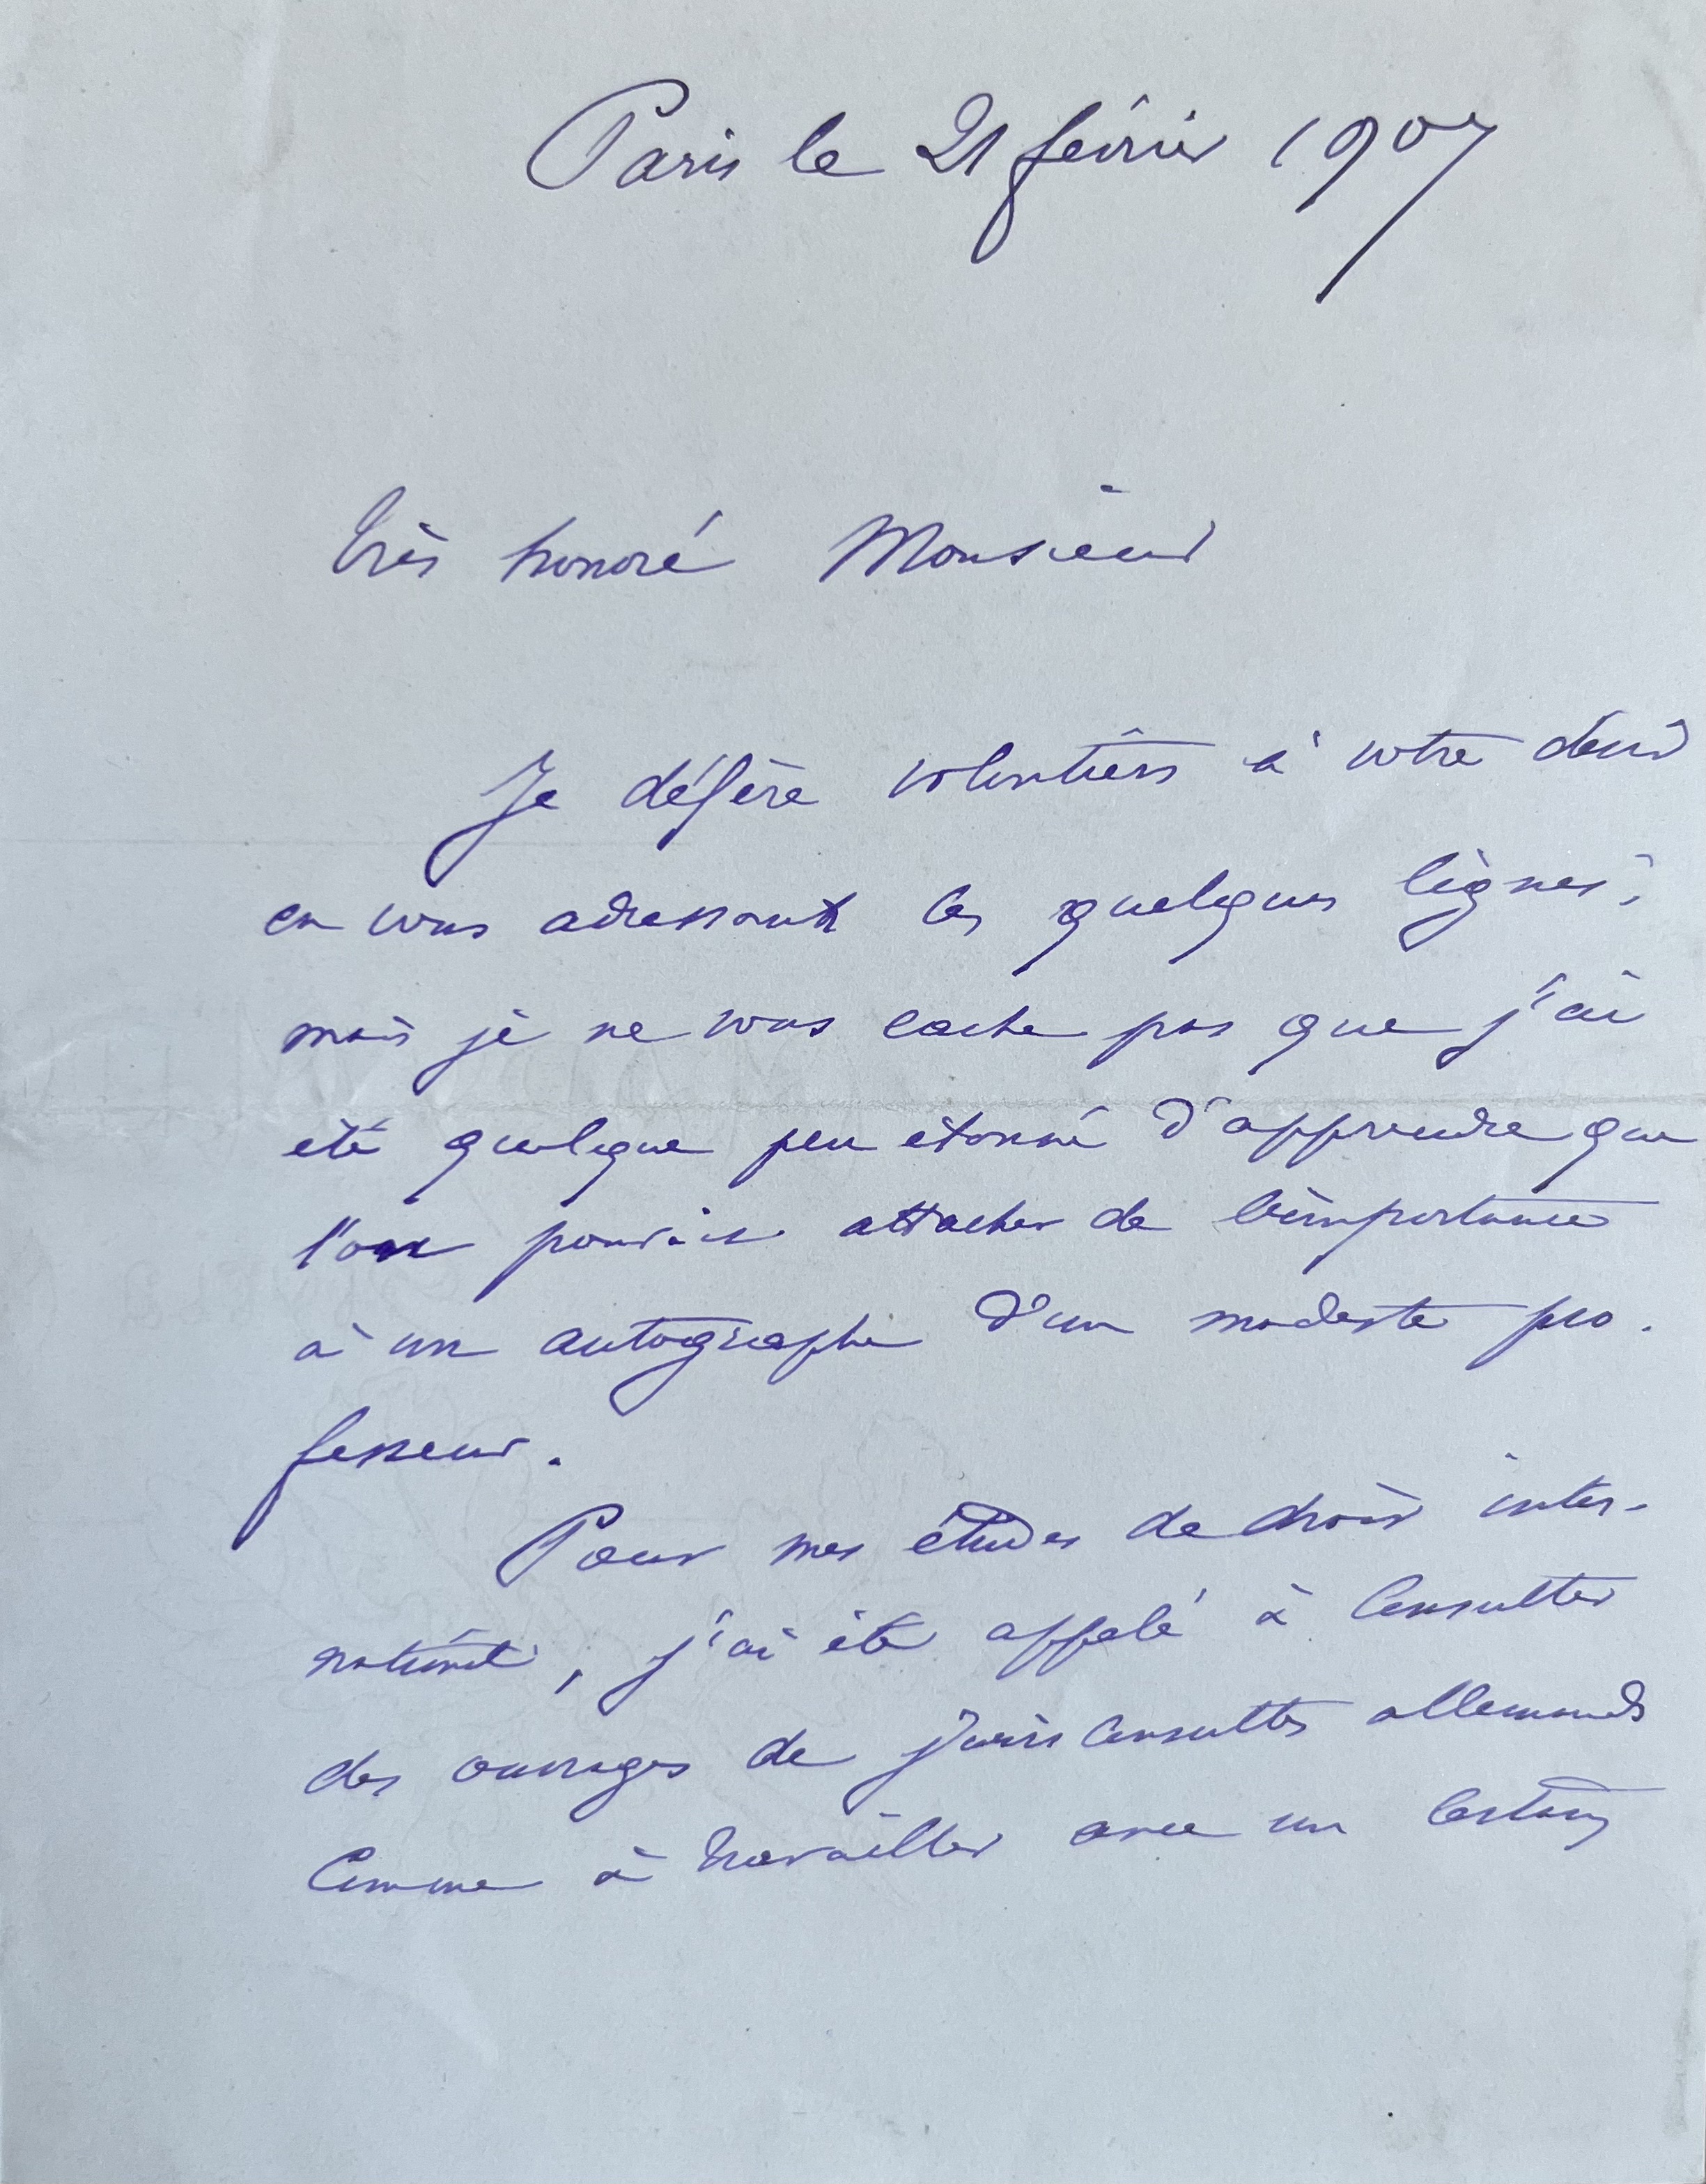 Paris le 21 février 1907
très honoré Monsieur
Je défère volontiers à votre désir
en vous adressant ces quelques lignes;
mais je ne vous cache pas que j'ai
été quelque peu étonné d'apprendre que
l'on pouvait attacher de l'importance
à un autographe d'un modeste pro-
fesseur.
Pour mes études de droit inter-
national, j'ai été appelé à consulter
des ouvrages de jurisconsultes allemands
comme à travailler avec un certain